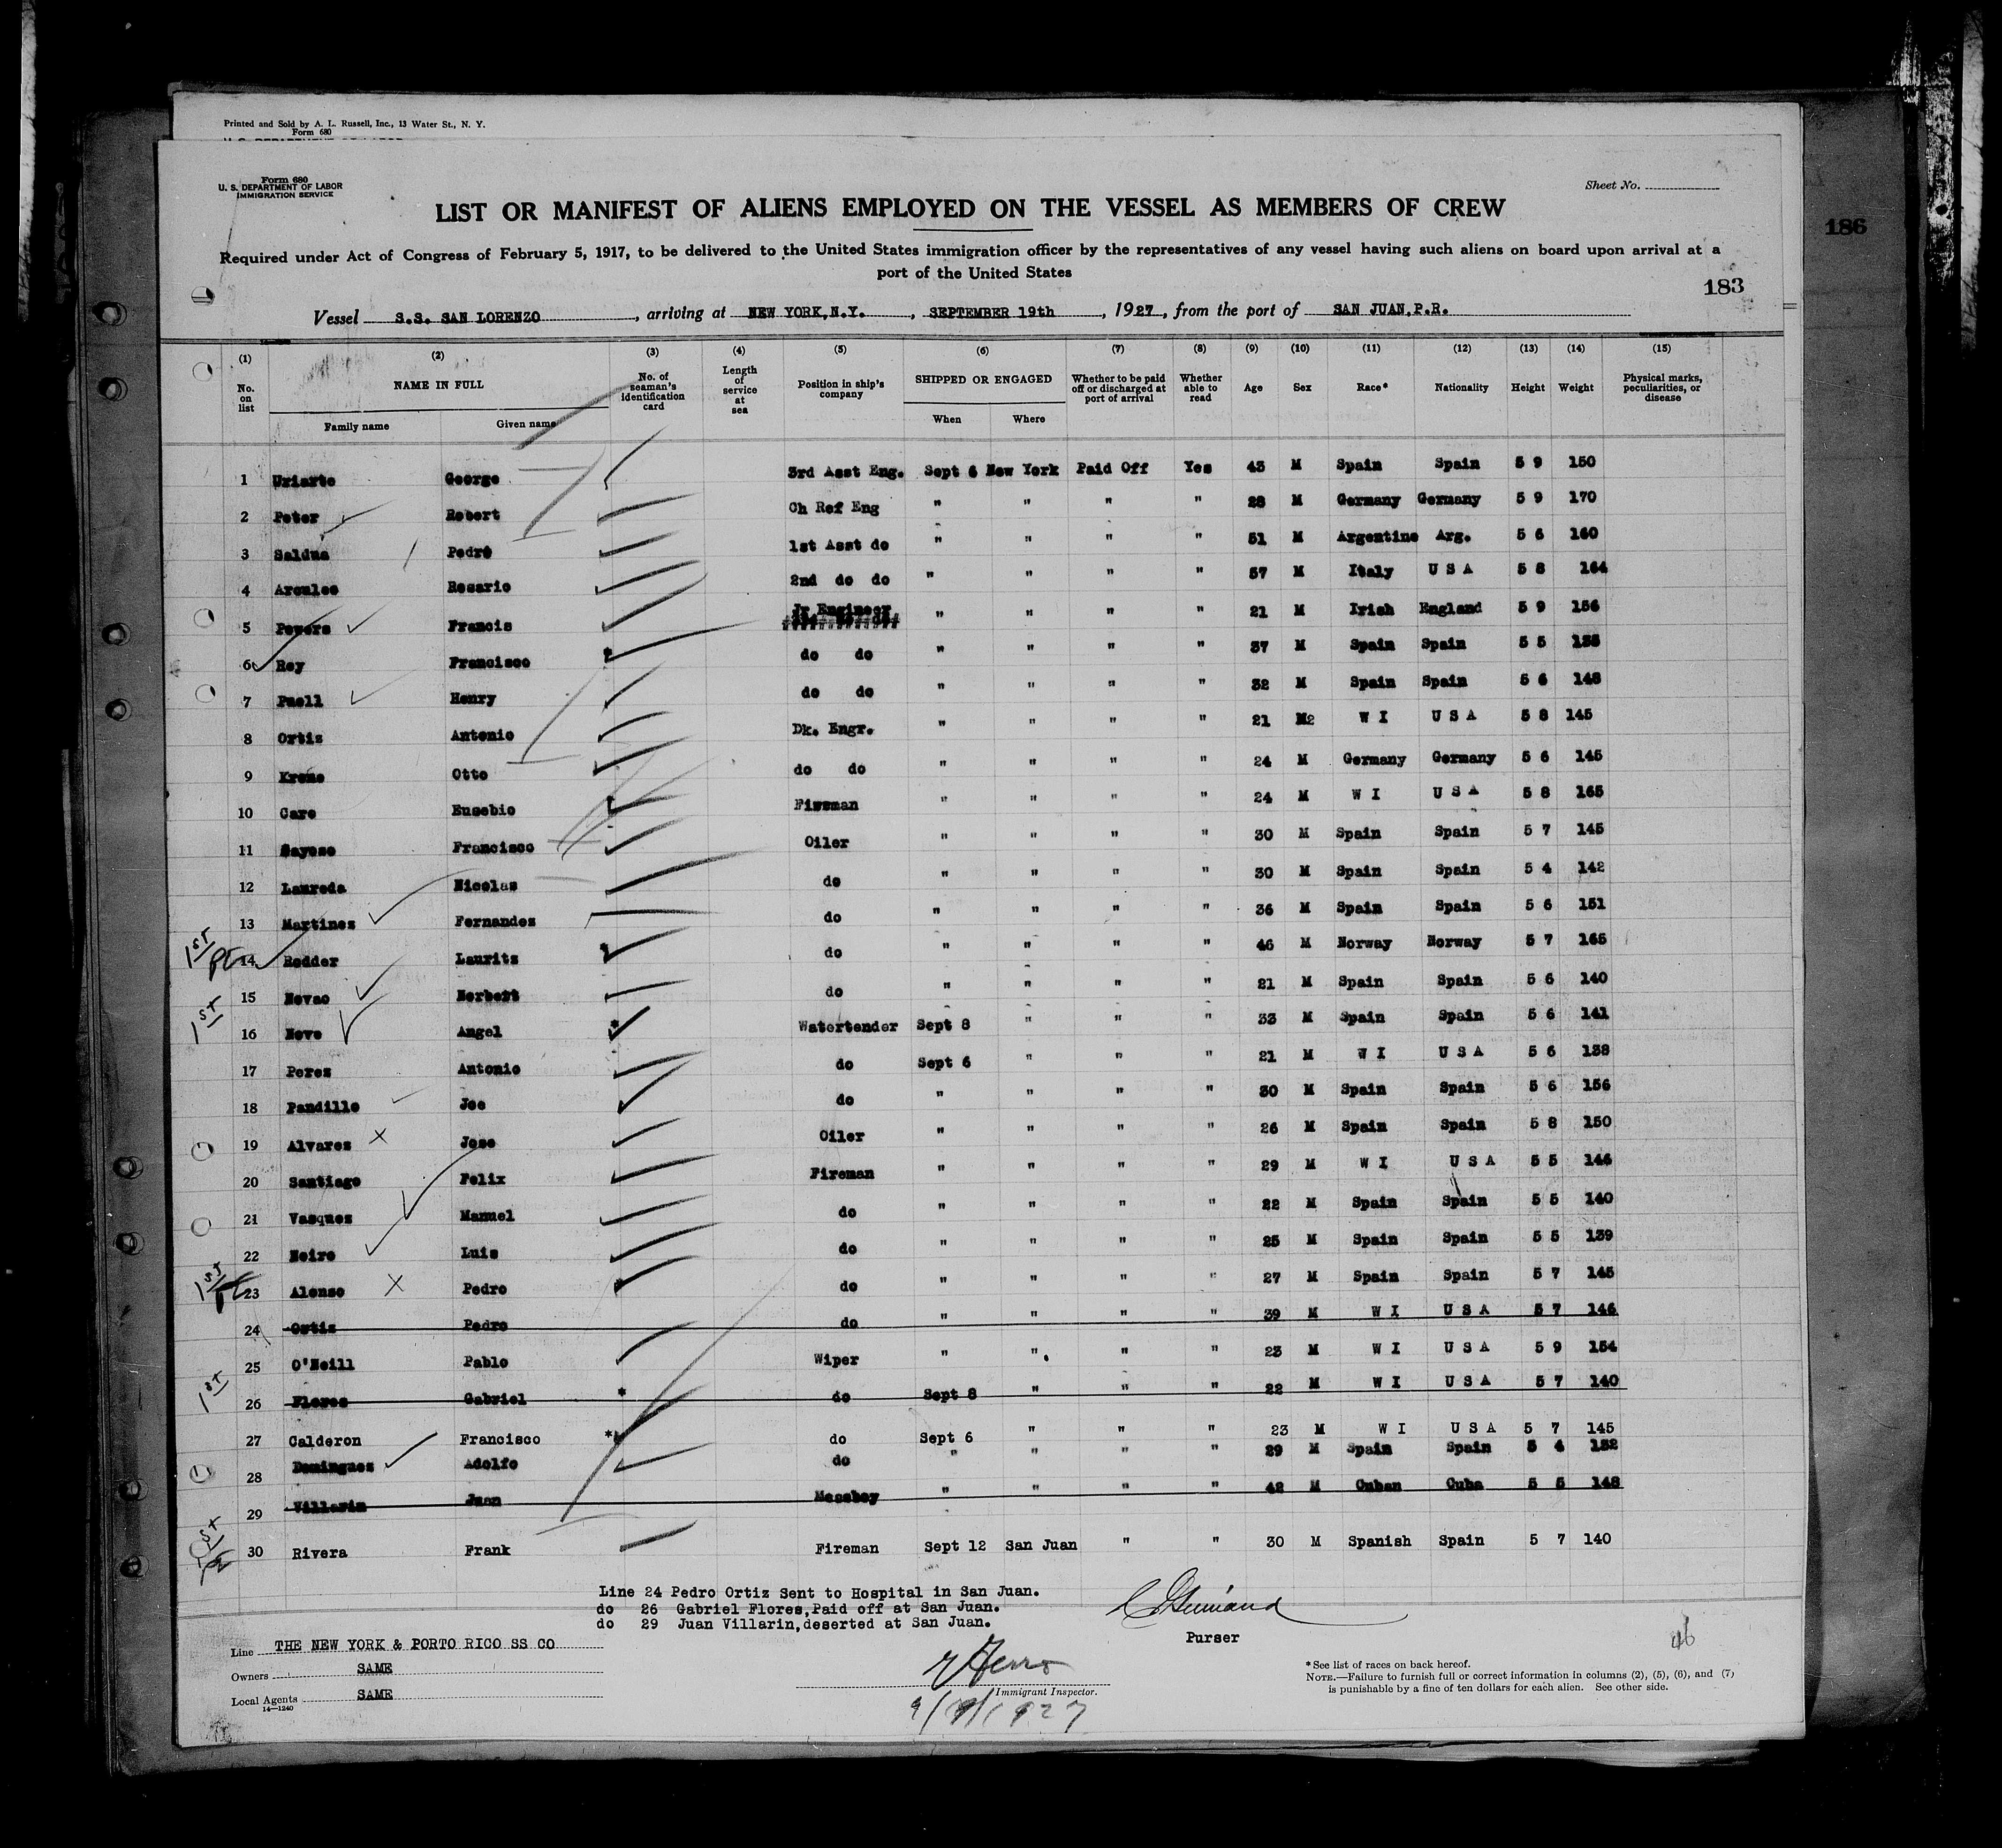 Printed and Sold by A. L. Russell, Inc., 13 Water St., N. Y.
Form 680
Form 680
U. S. DEPARTMENT OF LABOR
IMMIGRATION SERVICE
Sheet No.
LIST OR MANIFEST OF ALIENS EMPLOYED ON THE VESSEL AS MEMBERS OF CREW
186
Required under Act of Congress of February 5, 1917, to be delivered to the United States immigration officer by the representatives of any vessel having such aliens on board upon arrival at a
port of the United States
183
Vessel S.S. SAN LORENZO, arriving at NEW YORK,N.Y., SEPTEMBER 19th, 1927, from the port of SAN JUAN,P.R.
(1) (2) (3) (4) (5) (6) (7) (8) (9) (10) (11) (12) (13) (14) (15)
No. on list NAME IN FULL Family name Given name No. of seaman's identification card Length of service at sea Position in ship's company SHIPPED OR ENGAGED When Where Whether to be paid off or discharged at port of arrival Whether able to read Age Sex Race* Nationality Height Weight Physical marks, peculiarities, or disease
1 Uriarte George 3rd Asst Eng. Sept 6 New York Paid Off Yes 43 M Spain Spain 5 9 150
2 Peter Robert Ch Ref Eng " " " " 28 M Germany Germany 5 9 170
3 Saldua Pedro 1st Asst do " " " " 51 M Argentine Arg. 5 6 160
4 Arculeo Rosario 2nd do do " " " " 57 M Italy U S A 5 8 164
5 Powers Francis Jr Engineer " " " " 21 M Irish England 5 9 156
6 Rey Francisco do do " " " " 37 M Spain Spain 5 5
7 Puell Henry do do " " " " 32 M Spain Spain 5 6 148
8 Ortiz Antonio Dk. Engr. " " " " 21 M W I U S A 5 8 145
9 Otto do do " " " " 24 M Germany Germany 5 6 145
10 Caro Eusebio Fireman " " " " 24 M W I U S A 5 8 165
11 Francisco Oiler " " " " 30 M Spain Spain 5 7 145
12 Laureda Nicolas do " " " " 30 M Spain Spain 5 4 142
13 Martinez Fernandez do " " " " 36 M Spain Spain 5 6 151
1st
14 Rodder Lauritz do " " " " 46 M Norway Norway 5 7 165
15 Novao Norbert do " " " " 21 M Spain Spain 5 6 140
1st
16 Novo Angel * Watertender Sept 8 " " " 33 M Spain Spain 5 6 141
17 Perez Antonio do Sept 6 " " " 21 M W I U S A 5 6 138
18 Pandillo Joe do " " " " 30 M Spain Spain 5 6 156
19 Alvarez X Jose Oiler " " " " 26 M Spain Spain 5 8 150
20 Santiago Felix Fireman " " " " 29 M W I U S A 5 5 146
21 Vasquez Manuel do " " " " 22 M Spain Spain 5 5 140
22 Neiro Luis do " " " " 25 M Spain Spain 5 5 139
1st
23 Alonso X Pedro do " " " " 27 M Spain Spain 5 7 145
24 Ortiz Pedro do " " " " 39 M W I U S A 5 7 146
25 O'Neill Pablo Wiper " " " " 23 M W I U S A 5 9 154
1st
26 Flores Gabriel * do Sept 8 " " " 22 M W I U S A 5 7 140
27 Calderon Francisco * do Sept 6 " " " 23 M W I U S A 5 7 145
28 Dominguez Adolfo do " " " " 29 M Spain Spain 5 4 132
29 Villarin Juan Messboy " " " " 42 M Cuban Cuba 5 5 148
1st
30 Rivera Frank Fireman Sept 12 San Juan " " 30 M Spanish Spain 5 7 140
Line 24 Pedro Ortiz Sent to Hospital in San Juan.
do 26 Gabriel Flores,Paid off at San Juan.
do 29 Juan Villarin,deserted at San Juan.
Purser
Line THE NEW YORK & PORTO RICO SS CO
Owners SAME
Local Agents SAME
14—1240
Immigrant Inspector.
9/19/1927
*See list of races on back hereof.
NOTE.—Failure to furnish full or correct information in columns (2), (5), (6), and (7)
is punishable by a fine of ten dollars for each alien. See other side.